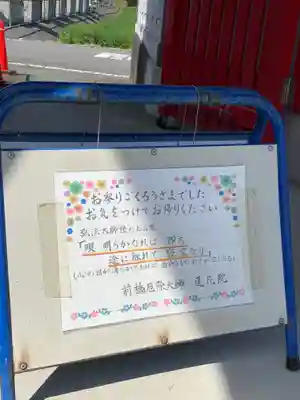 お参りごくろうさまでした
お気をつけてお帰りください
弘法大師様のお言葉
「眼 明らかなれば 即ち
途に触れて 皆宝なり」
前橋厄除大師 蓮花院